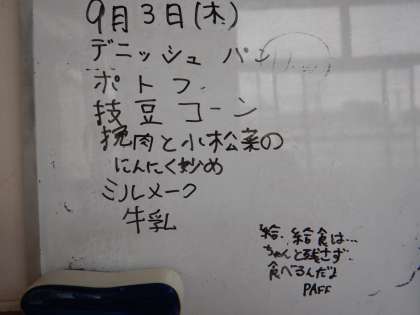 9月3日(木)
デニッシュ パン
ポトフ
枝豆コーン
挽肉と小松菜の
にんにく炒め
ミルメーク
牛乳
給、給食は…
ちゃんと残さず
食べるんだよ
PAFF